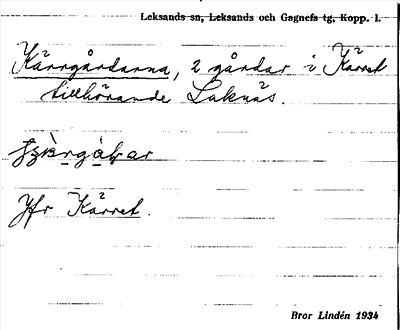 Leksands sn, Leksands och Gagnefs tg, Kopp. l.
Kärrgårdarna, 2 gårdar i Kärret
tillhörande Laknäs.
Jfr Kärret.
Bror Lindén 1934